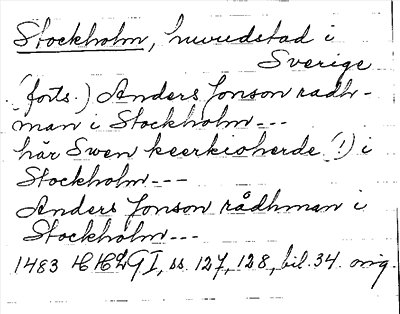 Stockholm, huvudstad i
Sverige
(forts.) Anders Jonson radh-
man i Stockholm---
här Swen keerkioherde (!) i
Stockholm---
Anders Jonson rådhman i
Stockholm---
1483 ss. 127, 128, bil. 34. orig.